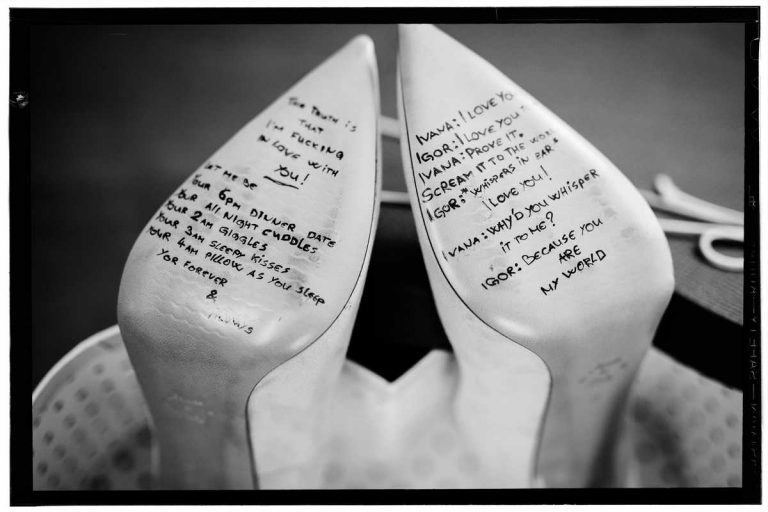 THE TRUTH IS
THAT
I'M FUCKING
IN LOVE WITH
YOU!
LET ME BE
YOUR 6PM DINNER DATE
YOUR ALL NIGHT CUDDLES
YOUR 2AM GIGGLES
YOUR 3AM SLEEPY KISSES
YOUR 4AM PILLOW AS YOU SLEEP
YOR FOREVER
&
IVANA: I LOVE YO
IGOR: I LOVE YOU
IVANA: PROVE IT.
SCREAM IT TO THE WORL
IGOR: *WHISPERS IN EAR*
I LOVE YOU!
IVANA: WHY'D YOU WHISPER
IT TO ME?
IGOR: BECAUSE YOU
ARE
MY WORLD